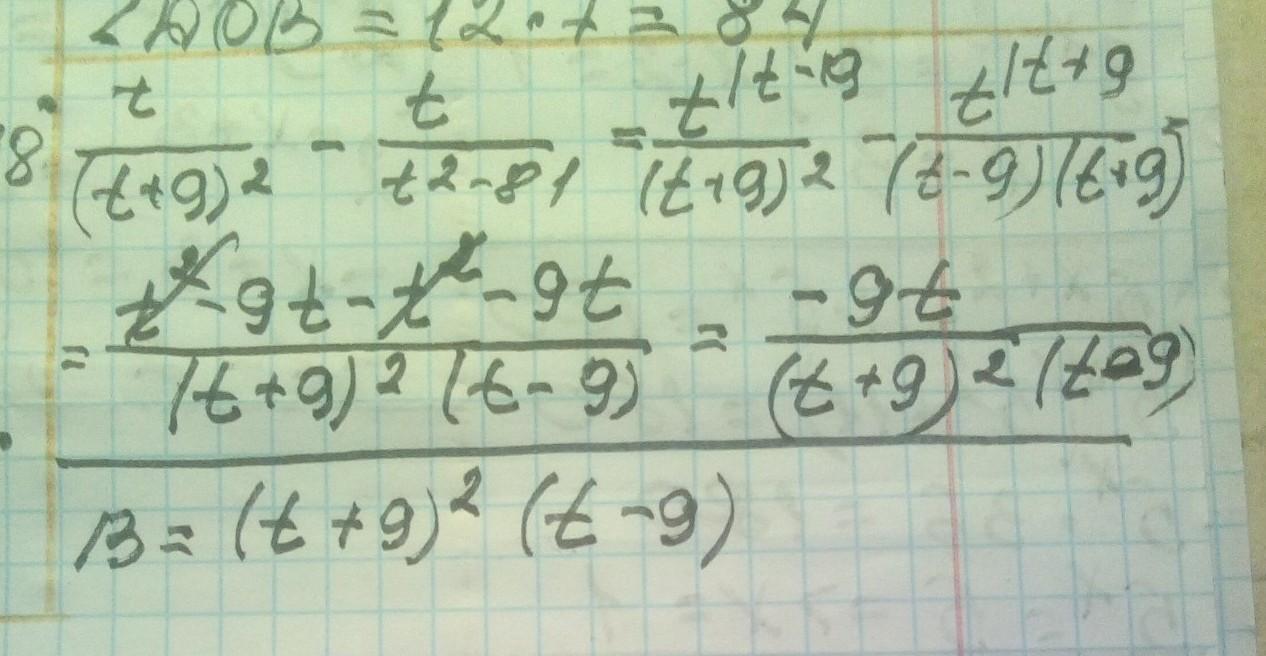 ∠AOB = 12 · 7 = 84
8. t/(t+9)² - t/(t²-81) = t|t-9/(t+9)² - t|t+9/((t-9)(t+9)) =
= (t²-9t-t²-9t)/((t+9)²(t-9)) = -9t/((t+9)²(t-9))
B = (t+9)² (t-9)